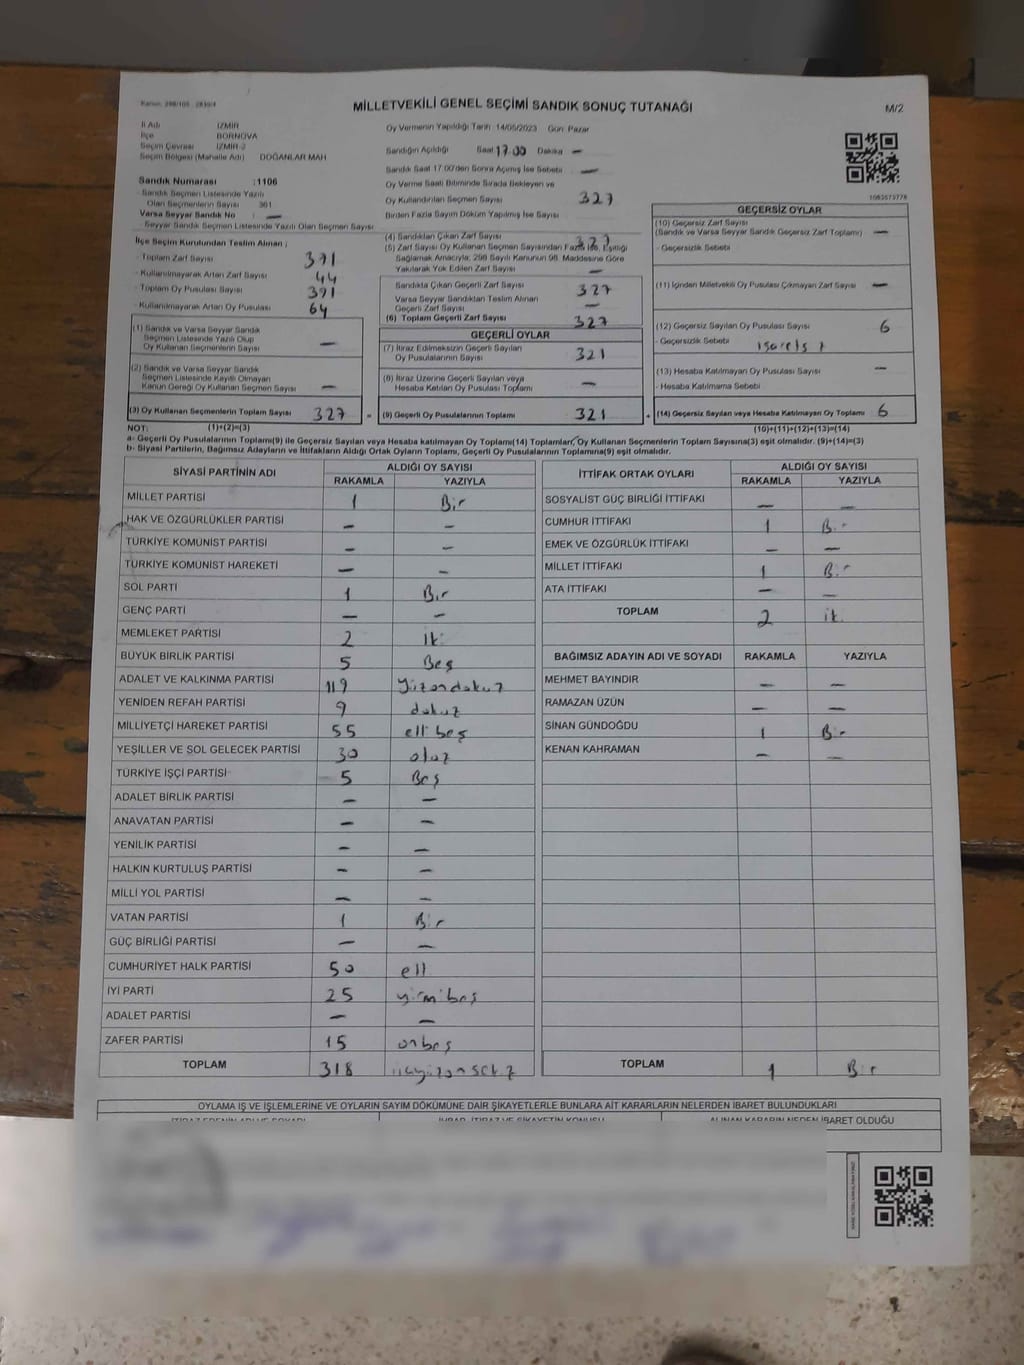 Kanun: 298/105 - 2839/4
MİLLETVEKİLİ GENEL SEÇİMİ SANDIK SONUÇ TUTANAĞI
M/2
İl Adı İZMİR
İlçe BORNOVA
Seçim Çevresi İZMİR-2
Seçim Bölgesi (Mahalle Adı) DOĞANLAR MAH
Oy Vermenin Yapıldığı Tarih 14/05/2023 Gün Pazar
Sandığın Açıldığı Saat 17.00 Dakika —
Sandık Saat 17:00'den Sonra Açılmış İse Sebebi —
Sandık Numarası : 1106
Sandık Seçmen Listesinde Yazılı
Olan Seçmenlerin Sayısı 361
Varsa Seyyar Sandık No : —
Seyyar Sandık Seçmen Listesinde Yazılı Olan Seçmen Sayısı
Oy Verme Saati Bitiminde Sırada Bekleyen ve
Oy Kullandırılan Seçmen Sayısı 327
Birden Fazla Sayım Döküm Yapılmış İse Sayısı
1083573778
İlçe Seçim Kurulundan Teslim Alınan ;
- Toplam Zarf Sayısı 371
- Kullanılmayarak Artan Zarf Sayısı 44
- Toplam Oy Pusulası Sayısı 391
- Kullanılmayarak Artan Oy Pusulası 64
(1) Sandık ve Varsa Seyyar Sandık
Seçmen Listesinde Yazılı Olup
Oy Kullanan Seçmenlerin Sayısı —
(2) Sandık ve Varsa Seyyar Sandık
Seçmen Listesinde Kayıtlı Olmayan
Kanun Gereği Oy Kullanan Seçmen Sayısı —
(3) Oy Kullanan Seçmenlerin Toplam Sayısı 327
(1)+(2)=(3)
(4) Sandıktan Çıkan Zarf Sayısı 327
(5) Zarf Sayısı Oy Kullanan Seçmen Sayısından Fazla İse, Eşitliği
Sağlamak Amacıyla, 298 Sayılı Kanunun 98. Maddesine Göre
Yakılarak Yok Edilen Zarf Sayısı —
Sandıkta Çıkan Geçerli Zarf Sayısı 327
Varsa Seyyar Sandıktan Teslim Alınan
Geçerli Zarf Sayısı —
(6) Toplam Geçerli Zarf Sayısı 327
GEÇERLİ OYLAR
(7) İtiraz Edilmeksizin Geçerli Sayılan
Oy Pusulalarının Sayısı 321
(8) İtiraz Üzerine Geçerli Sayılan veya
Hesaba Katılan Oy Pusulası Toplamı —
= (9) Geçerli Oy Pusulalarının Toplamı 321
GEÇERSİZ OYLAR
(10) Geçersiz Zarf Sayısı
(Sandık ve Varsa Seyyar Sandık Geçersiz Zarf Toplamı) —
- Geçersizlik Sebebi
(11) İçinden Milletvekili Oy Pusulası Çıkmayan Zarf Sayısı —
(12) Geçersiz Sayılan Oy Pusulası Sayısı 6
- Geçersizlik Sebebi
(13) Hesaba Katılmayan Oy Pusulası Sayısı —
- Hesaba Katılmama Sebebi
+ (14) Geçersiz Sayılan veya Hesaba Katılmayan Oy Toplamı 6
(10)+(11)+(12)+(13)=(14)
NOT:
a- Geçerli Oy Pusulalarının Toplamı(9) ile Geçersiz Sayılan veya Hesaba katılmayan Oy Toplamı(14) Toplamları, Oy Kullanan Seçmenlerin Toplam Sayısına(3) eşit olmalıdır. (9)+(14)=(3)
b- Siyasi Partilerin, Bağımsız Adayların ve İttifakların Aldığı Ortak Oyların Toplamı, Geçerli Oy Pusulalarının Toplamına(9) eşit olmalıdır.
SİYASİ PARTİNİN ADI ALDIĞI OY SAYISI
RAKAMLA YAZIYLA
MİLLET PARTİSİ 1 Bir
HAK VE ÖZGÜRLÜKLER PARTİSİ — —
TÜRKİYE KOMÜNİST PARTİSİ — —
TÜRKİYE KOMÜNİST HAREKETİ — —
SOL PARTİ 1 Bir
GENÇ PARTİ — —
MEMLEKET PARTİSİ 2 iki
BÜYÜK BİRLİK PARTİSİ 5 Beş
ADALET VE KALKINMA PARTİSİ 119 yüzondokuz
YENİDEN REFAH PARTİSİ 9 dokuz
MİLLİYETÇİ HAREKET PARTİSİ 55 elli beş
YEŞİLLER VE SOL GELECEK PARTİSİ 30 otuz
TÜRKİYE İŞÇİ PARTİSİ 5 Beş
ADALET BİRLİK PARTİSİ — —
ANAVATAN PARTİSİ — —
YENİLİK PARTİSİ — —
HALKIN KURTULUŞ PARTİSİ — —
MİLLİ YOL PARTİSİ — —
VATAN PARTİSİ 1 Bir
GÜÇ BİRLİĞİ PARTİSİ — —
CUMHURİYET HALK PARTİSİ 50 elli
İYİ PARTİ 25 yirmibeş
ADALET PARTİSİ — —
ZAFER PARTİSİ 15 onbeş
TOPLAM 318 üçyüzonsekiz
İTTİFAK ORTAK OYLARI ALDIĞI OY SAYISI
RAKAMLA YAZIYLA
SOSYALİST GÜÇ BİRLİĞİ İTTİFAKI — —
CUMHUR İTTİFAKI 1 Bir
EMEK VE ÖZGÜRLÜK İTTİFAKI — —
MİLLET İTTİFAKI 1 Bir
ATA İTTİFAKI — —
TOPLAM 2 iki
BAĞIMSIZ ADAYIN ADI VE SOYADI RAKAMLA YAZIYLA
MEHMET BAYINDIR — —
RAMAZAN ÜZÜN — —
SİNAN GÜNDOĞDU 1 Bir
KENAN KAHRAMAN — —
TOPLAM 1 Bir
OYLAMA İŞ VE İŞLEMLERİNE VE OYLARIN SAYIM DÖKÜMÜNE DAİR ŞİKAYETLERLE BUNLARA AİT KARARLARIN NELERDEN İBARET BULUNDUKLARI
İTİRAZ EDENİN ADI VE SOYADI İHBAR, İTİRAZ VE ŞİKAYETİN KONUSU ALINAN KARARIN NEDEN İBARET OLDUĞU